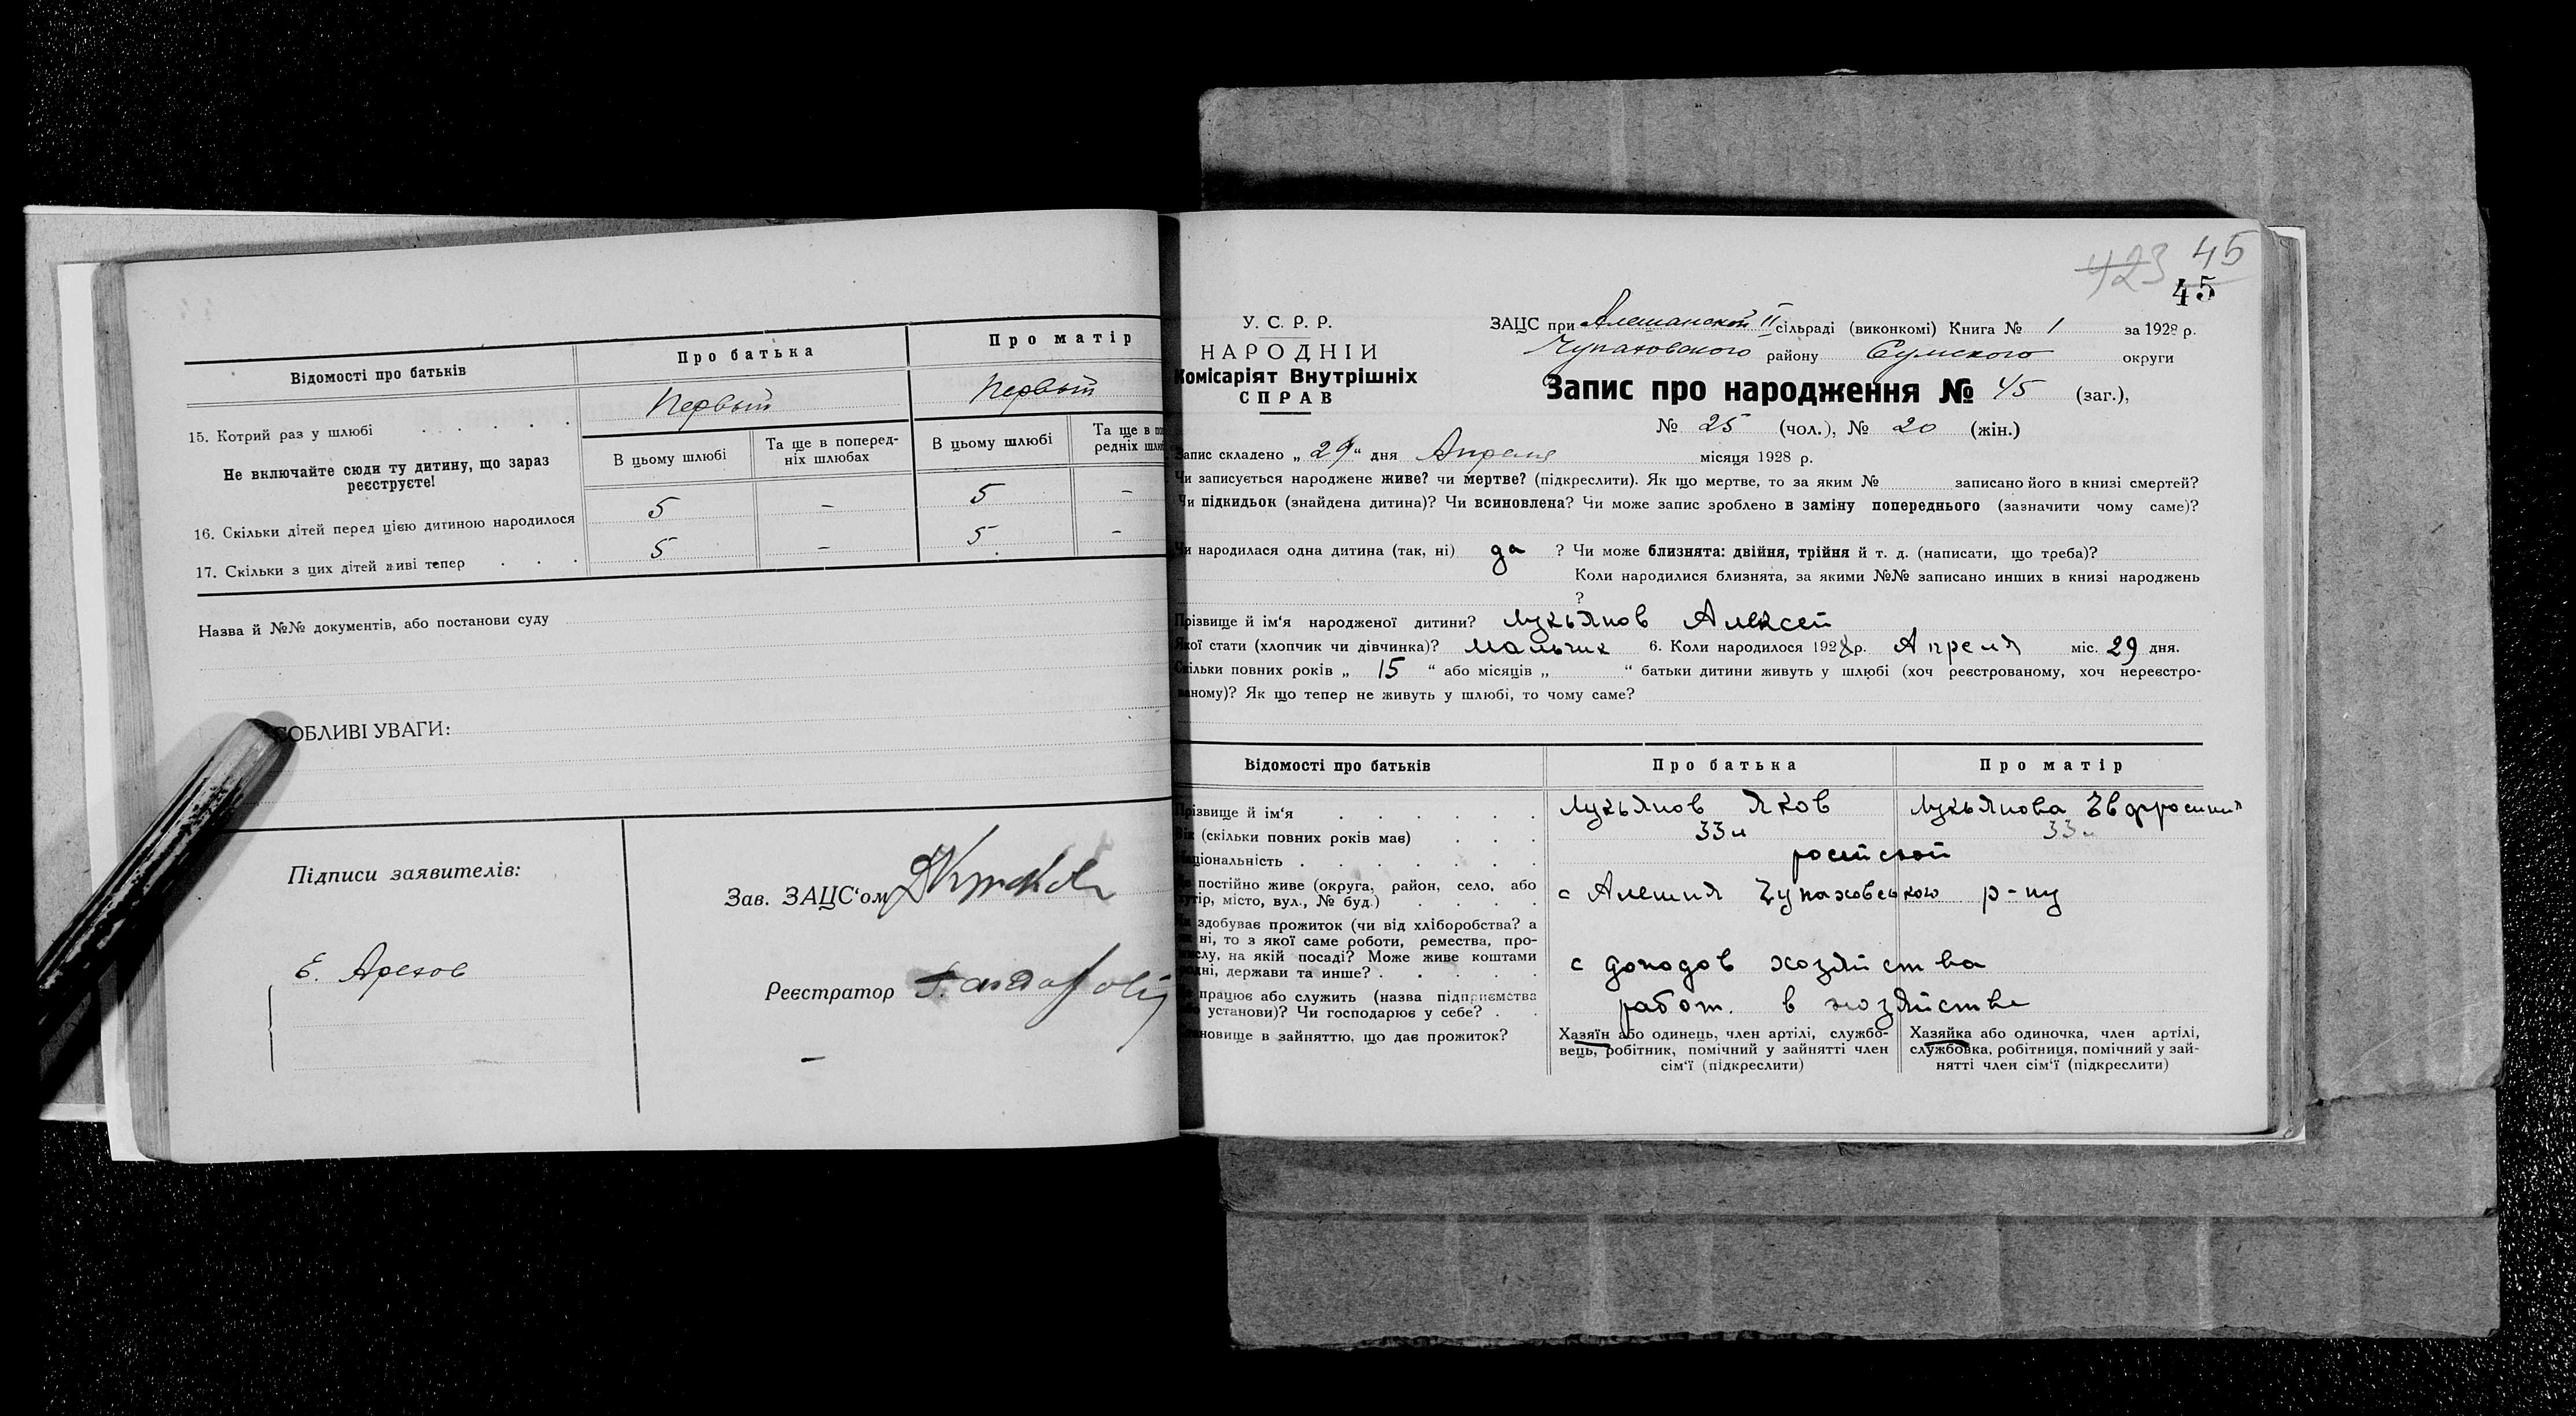 Відомості про батьків
Про батька
Про матір
15. Котрий раз у шлюбі
Первый
Первый
Не включайте сюди ту дитину, що зараз
реєструєте!
В цьому шлюбі
Та ще в поперед-
ніх шлюбах
В цьому шлюбі
Та ще в по
редніх шлю
16. Скільки дітей перед цією дитиною народилося
5 - 5 -
17. Скільки з цих дітей живі тепер
5 - 5 -
Назва й №№ документів, або постанови суду
СОБЛИВІ УВАГИ:
Підписи заявителів:
Е. Арехов
Зав. ЗАЦС'ом
Реєстратор
423 45
45
У. С. Р. Р.
НАРОДНІЙ
Комісаріят Внутрішніх
СПРАВ
ЗАЦС при Алешанской II сільраді (виконкомі) Книга № 1 за 1928 р.
Чупаховского району Сумского округи
Запис про народження № 45 (заг.),
№ 25 (чол.), № 20 (жін.)
Запис складено „ 29 “ дня Апреля місяця 1928 р.
Чи записується народжене живе? чи мертве? (підкреслити). Як що мертве, то за яким № записано його в книзі смертей?
Чи підкидьок (знайдена дитина)? Чи всиновлена? Чи може запис зроблено в заміну попереднього (зазначити чому саме)?
Чи народилася одна дитина (так, ні) да ? Чи може близнята: двійня, трійня й т. д. (написати, що треба)?
Коли народилися близнята, за якими №№ записано инших в книзі народжень
?
Прізвище й ім'я народженої дитини? Лукьянов Алексей
Якої стати (хлопчик чи дівчинка)? Мальчик 6. Коли народилося 1928 р. Апреля міс. 29 дня.
Скільки повних років „ 15 “ або місяців „ “ батьки дитини живуть у шлюбі (хоч реєстрованому, хоч нереєстро-
ваному)? Як що тепер не живуть у шлюбі, то чому саме?
Відомості про батьків
Про батька
Про матір
Прізвище й ім'я
Лукьянов Яков
Лукьянова Эвфросиния
Вік (скільки повних років має)
33 л
33 л
Національність
росийской
постійно живе (округа, район, село, або
хутір, місто, вул., № буд.)
с Алешня Чупаховського р-ну
здобуває прожиток (чи від хліборобства? а
ні, то з якої саме роботи, ремества, про-
мислу, на якій посаді? Може живе коштами
родні, держави та инше?
с доходов хозяйства
працює або служить (назва підприємства
установи)? Чи господарює у себе?
работ. в хозяйстве
ановище в зайняттю, що дає прожиток?
Хазяїн або одинець, член артілі, службо-
вець, робітник, помічний у зайнятті член
сім'ї (підкреслити)
Хазяйка або одиночка, член артілі,
службовка, робітниця, помічний у зай-
нятті член сім'ї (підкреслити)